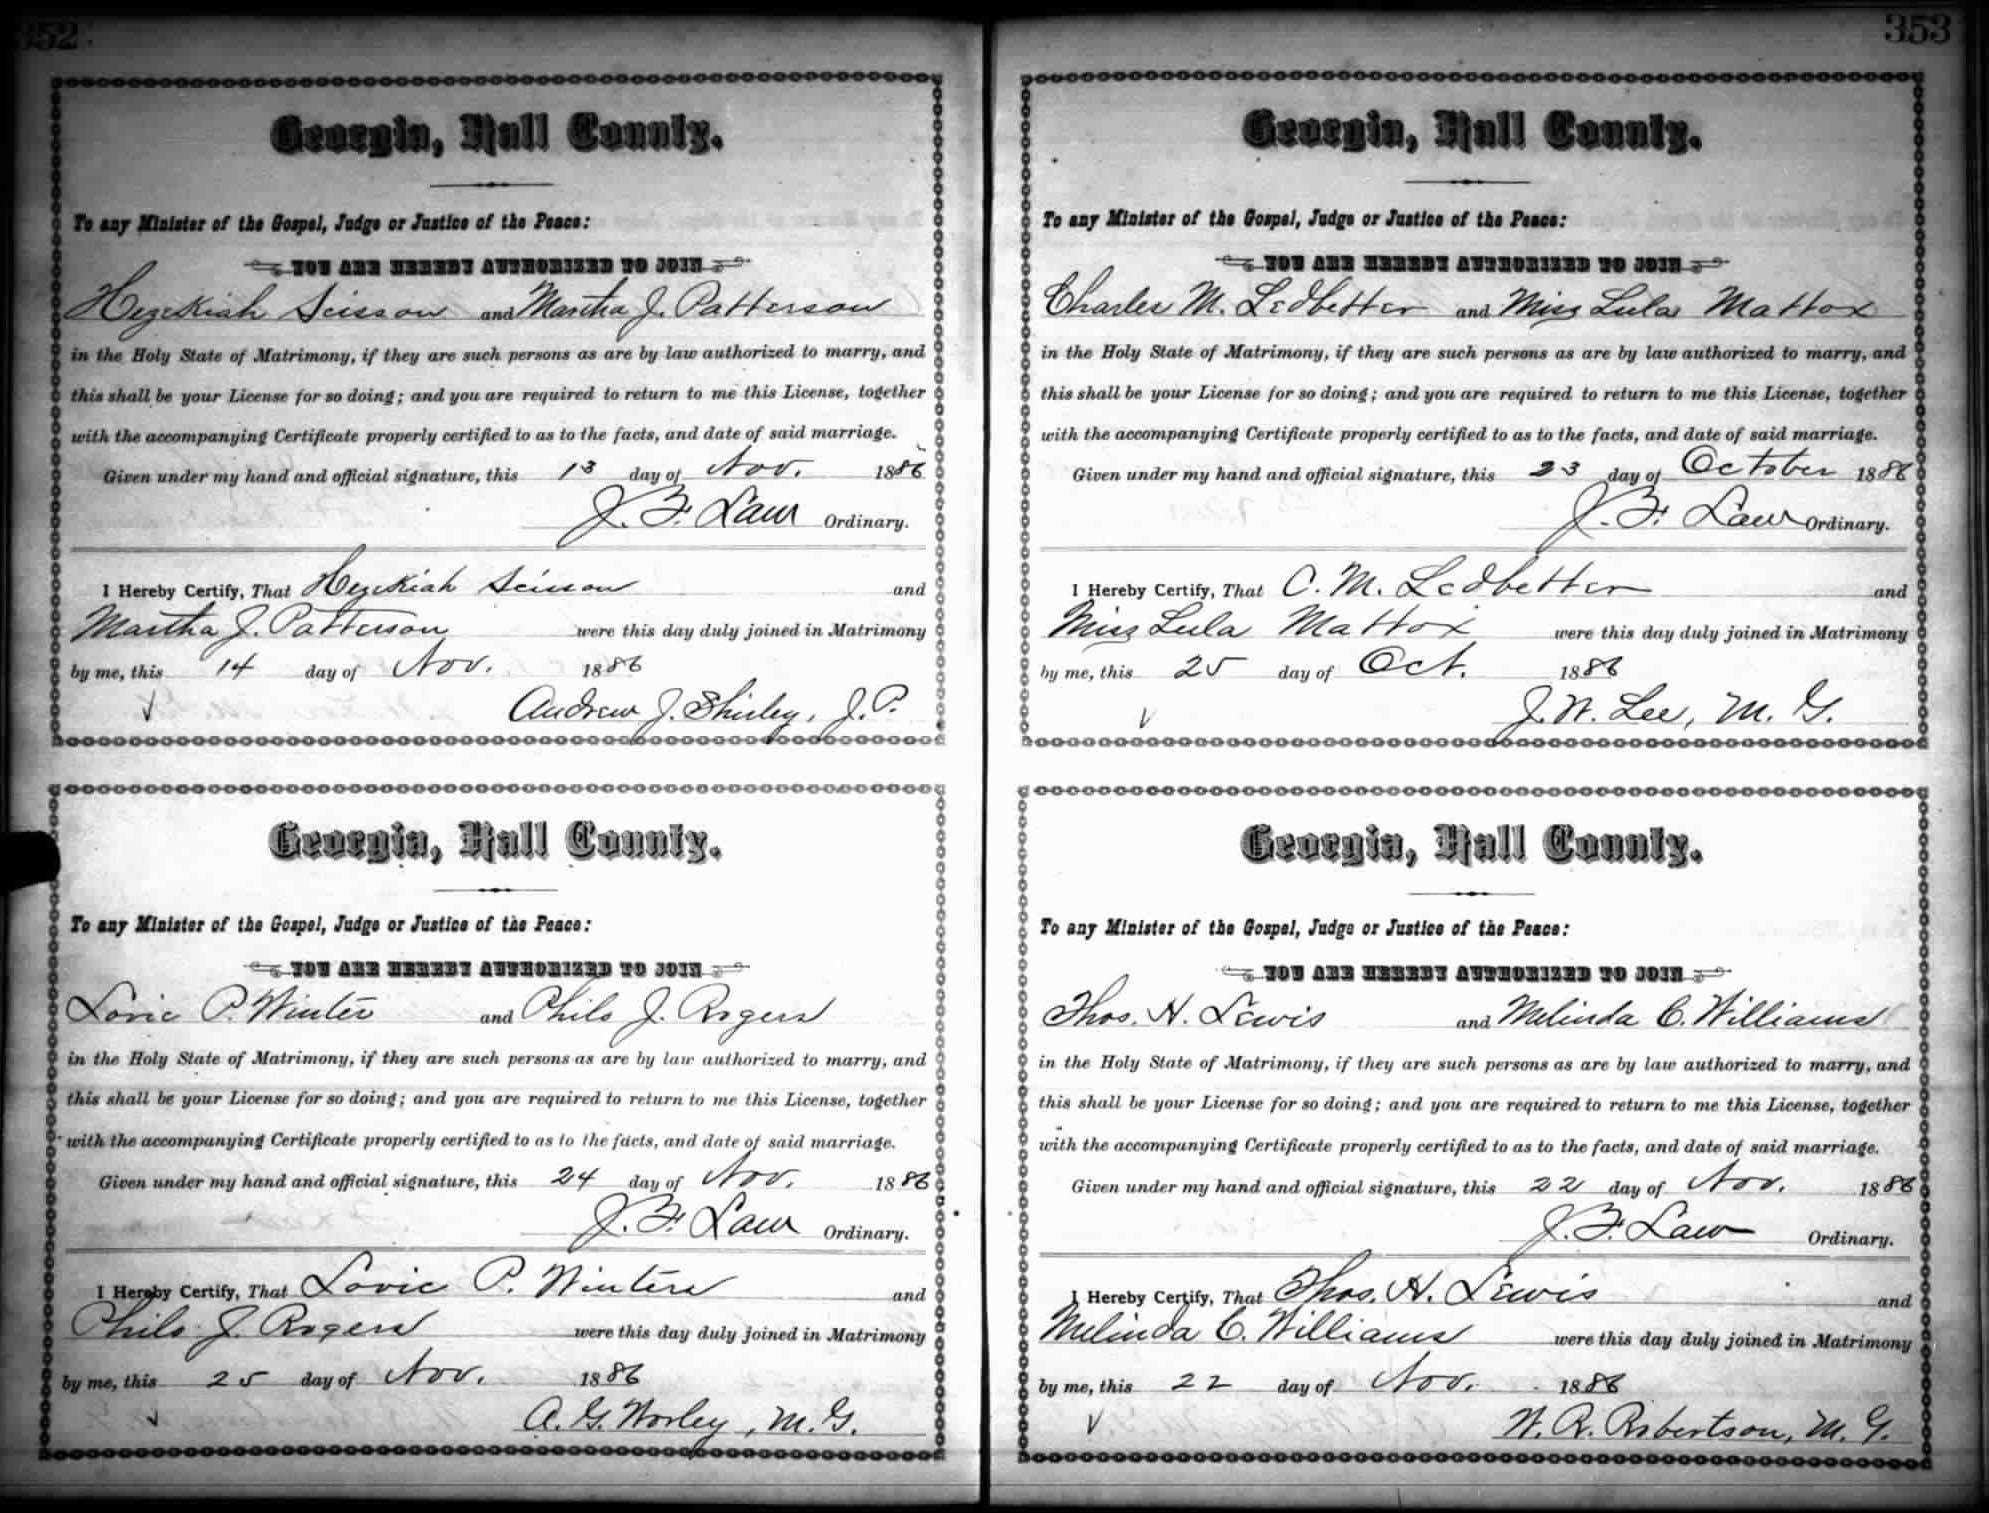 352
Georgia, Hall County.
To any Minister of the Gospel, Judge or Justice of the Peace:
YOU ARE HEREBY AUTHORIZED TO JOIN
Hezekiah Sisson and Martha J. Patterson
in the Holy State of Matrimony, if they are such persons as are by law authorized to marry, and
this shall be your License for so doing; and you are required to return to me this License, together
with the accompanying Certificate properly certified to as to the facts, and date of said marriage.
Given under my hand and official signature, this 13 day of Nov. 1886
J. F. Law Ordinary.
I Hereby Certify, That Hezekiah Sisson and
Martha J. Patterson were this day duly joined in Matrimony
by me, this 14 day of Nov. 1886
Andrew J. Shirley, J. P.
Georgia, Hall County.
To any Minister of the Gospel, Judge or Justice of the Peace:
YOU ARE HEREBY AUTHORIZED TO JOIN
Lovic P. Winters and Philo J. Rogers
in the Holy State of Matrimony, if they are such persons as are by law authorized to marry, and
this shall be your License for so doing; and you are required to return to me this License, together
with the accompanying Certificate properly certified to as to the facts, and date of said marriage.
Given under my hand and official signature, this 24 day of Nov. 1886
J. F. Law Ordinary.
I Hereby Certify, That Lovic P. Winters and
Philo J. Rogers were this day duly joined in Matrimony
by me, this 25 day of Nov. 1886
A. G. Worley, M. G.
353
Georgia, Hall County.
To any Minister of the Gospel, Judge or Justice of the Peace:
YOU ARE HEREBY AUTHORIZED TO JOIN
Charles M. Ledbetter and Miss Lula Mattox
in the Holy State of Matrimony, if they are such persons as are by law authorized to marry, and
this shall be your License for so doing; and you are required to return to me this License, together
with the accompanying Certificate properly certified to as to the facts, and date of said marriage.
Given under my hand and official signature, this 23 day of October 1886
J. F. Law Ordinary.
I Hereby Certify, That C. M. Ledbetter and
Miss Lula Mattox were this day duly joined in Matrimony
by me, this 25 day of Oct. 1886
J. W. Lee, M. G.
Georgia, Hall County.
To any Minister of the Gospel, Judge or Justice of the Peace:
YOU ARE HEREBY AUTHORIZED TO JOIN
Thos. H. Lewis and Melinda C. Williams
in the Holy State of Matrimony, if they are such persons as are by law authorized to marry, and
this shall be your License for so doing; and you are required to return to me this License, together
with the accompanying Certificate properly certified to as to the facts, and date of said marriage.
Given under my hand and official signature, this 22 day of Nov. 1886
J. F. Law Ordinary.
I Hereby Certify, That Thos. H. Lewis and
Melinda C. Williams were this day duly joined in Matrimony
by me, this 22 day of Nov. 1886
W. R. Robertson, M. G.